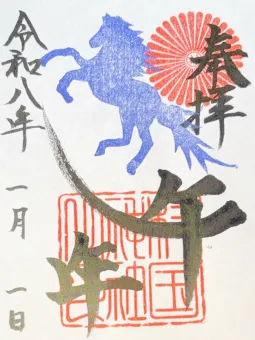 奉拝
午年
令和八年
一月
一日